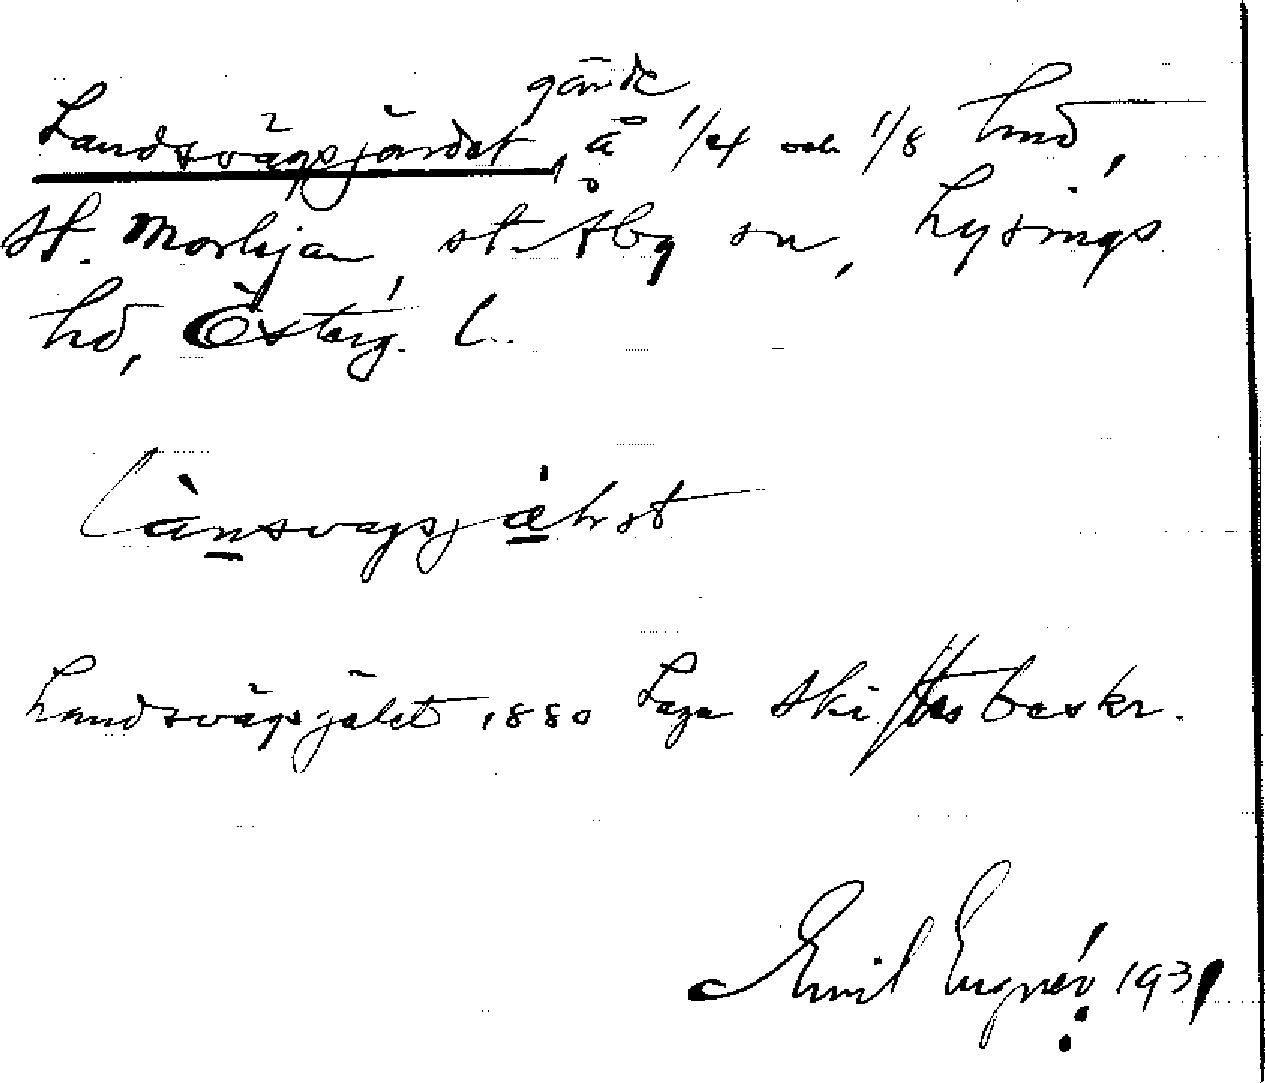 gärde
Landsvägsjärdet, å 1/4 och 1/8 hmd,
st. Morkjan, st. Åby sn, Lysings
hd, Österg. l.
länsvagsjähst
Landsvägsjälet 1880 Laga skiftesbeskr.
Emil Engnér 1931